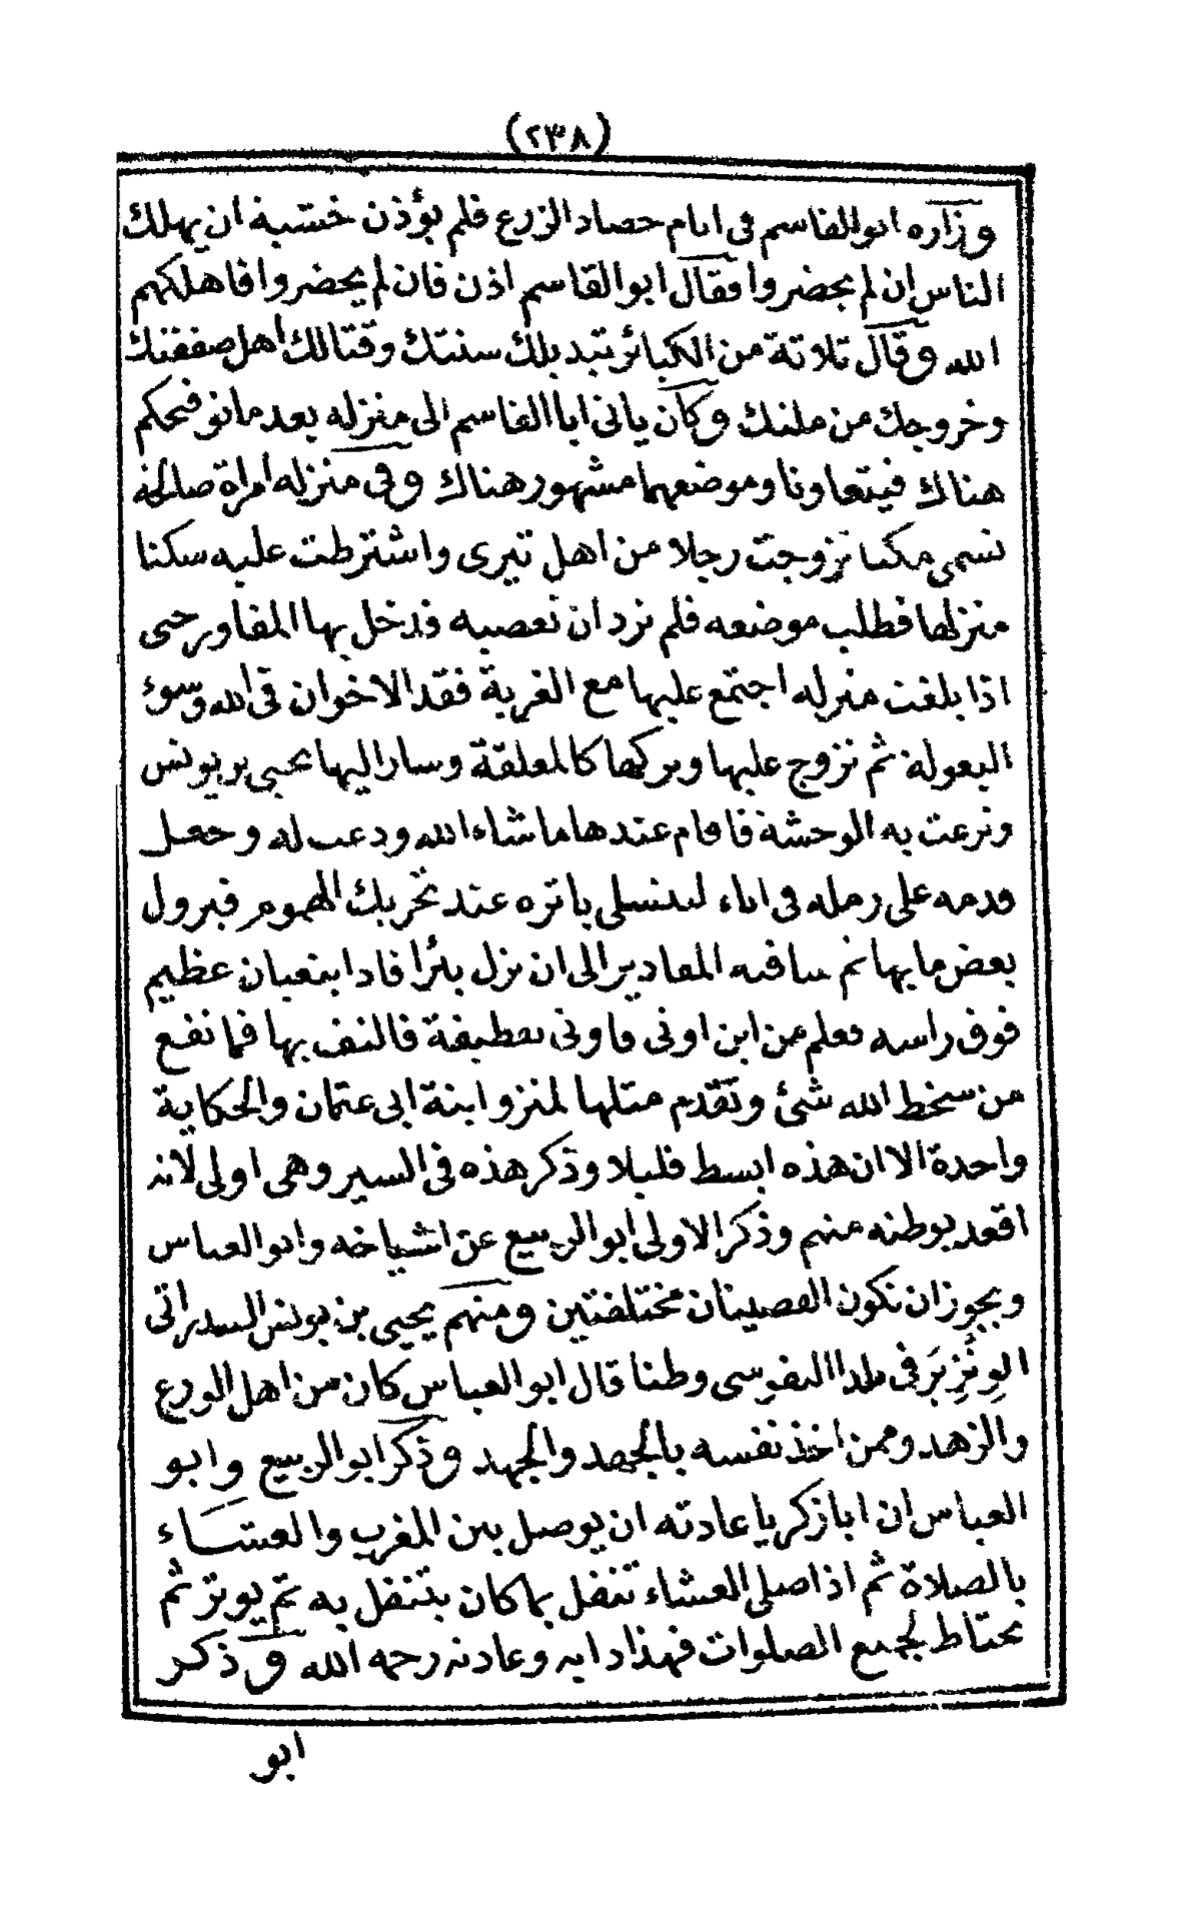 (٢٣٨)
وزاره ابوالقاسم فى ايام حصاد الزرع فلم يؤذن خشية ان يهلك
الناس ان لم يحضروا فقال ابوالقاسم اذن فان لم يحضروا فاهلكهم
الله وقال ثلاثة من الكبائر تبديلك سنتك وقتالك اهل صفقتك
وخروجك من ملتك وكان ياتى ابا القاسم الى منزله بعد ماتوفى محكم
هناك فيتعاونا وموضعهما مشهور هناك وفى منزله امراة صالحة
تسمى مكسا تزوجت رجلا من اهل تيرى واشترطت عليه سكنا
منزلها فطلب موضعه فلم ترد ان تعصيه فدخل بها المفاوز حتى
اذا بلغت منزله اجتمع عليها مع الغربة فقد الاخوان فى الله وسوء
البعولة ثم تزوج عليها وتركها كالمعلقة وسار اليها يحيى بن يونس
ونزعت به الوحشة فاقام عندها ماشاء الله ودعت له وجعل
قدمه على رحله فى اناء لتتسلى باثره عند تحريك الهموم فيزول
بعض مابها ثم ساقته المقادير الى ان نزل بئرا فاذا بثعبان عظيم
فوق راسه فعلم من اين اوتى فاوتى بقطيفة فالتف بها فما نفع
من سخط الله شئ وتقدم مثلها لمنزو ابنة ابى عثمان والحكاية
واحدة الا ان هذه ابسط قليلا وذكر هذه فى السير وهى اولى لانه
اقعد بوطنه منهم وذكر الاولى ابوالربيع عن اشياخه وابوالعباس
ويجوز ان تكون القصيتان مختلفتين ومنهم يحيى بن يونس السدراتى
الوِنْزِيْرَفى بلدا النفوسى وطنا قال ابوالعباس كان من اهل الورع
والزهد وممن اخذ نفسه بالجهد والجهد وذكر ابوالربيع وابو
العباس ان ابا زكريا عادته ان يوصل بين المغرب والعشاء
بالصلاة ثم اذا صلى العشاء تنفل بما كان يتنفل به ثم يوتر ثم
يحتاط لجميع الصلوات فهذا دابه وعادته رحمه الله وذكر
ابو